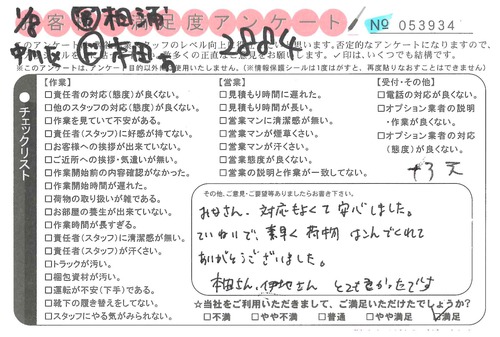 お客様満足度アンケート
No 053934
2884
※このアンケートは、アンケート目的以外には使用いたしません。(情報保護シールは1度はがすと、再度貼りなおすことはできません)
チェックリスト
【作業】
□責任者の対応(態度)が良くない。
□他のスタッフの対応(態度)が良くない。
□作業を見ていて不安がある。
□責任者(スタッフ)に好感が持てない。
□お客様への挨拶が出来ていない。
□ご近所への挨拶・気遣いが無い。
□作業開始前の内容確認がなかった。
□作業開始時間が遅れた。
□荷物の取り扱いが雑である。
□お部屋の養生が出来ていない。
□作業時間が長すぎる。
□責任者(スタッフ)に清潔感が無い。
□責任者(スタッフ)が汗くさい。
□トラックが汚い。
□梱包資材が汚い。
□運転が不安(下手)である。
□靴下の履き替えをしてない。
□スタッフにやる気がみられない。
【営業】
□見積もり時間に遅れた。
□見積もり時間が長い。
□営業マンに清潔感が無い。
□営業マンが煙草くさい。
□営業マンが汗くさい。
□営業態度が良くない。
□営業の説明と作業が一致してない。
【受付・その他】
□電話の対応が良くない。
□オプション業者の説明
・作業が良くない。
□オプション業者の対応
(態度)が良くない。
その他、ご意見・ご要望等ありましたらお書き下さい。
みなさん、対応もよくて安心しました。
ていねいで、素早く荷物はこんでくれて
ありがとうございました。
本田さん、伊地さん とてもよかったです
☆当社をご利用いただきまして、ご満足いただけたでしょうか?
□不満 □やや不満 □普通 □やや満足 ☑満足